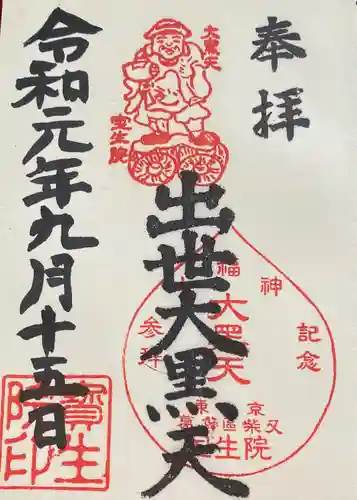 奉拝
大黒天
宝生院
出世大黒天
福神
記念
参拝
大黒天
東京
葛飾區柴又
宝生院
令和元年九月十五日
寳生
院印